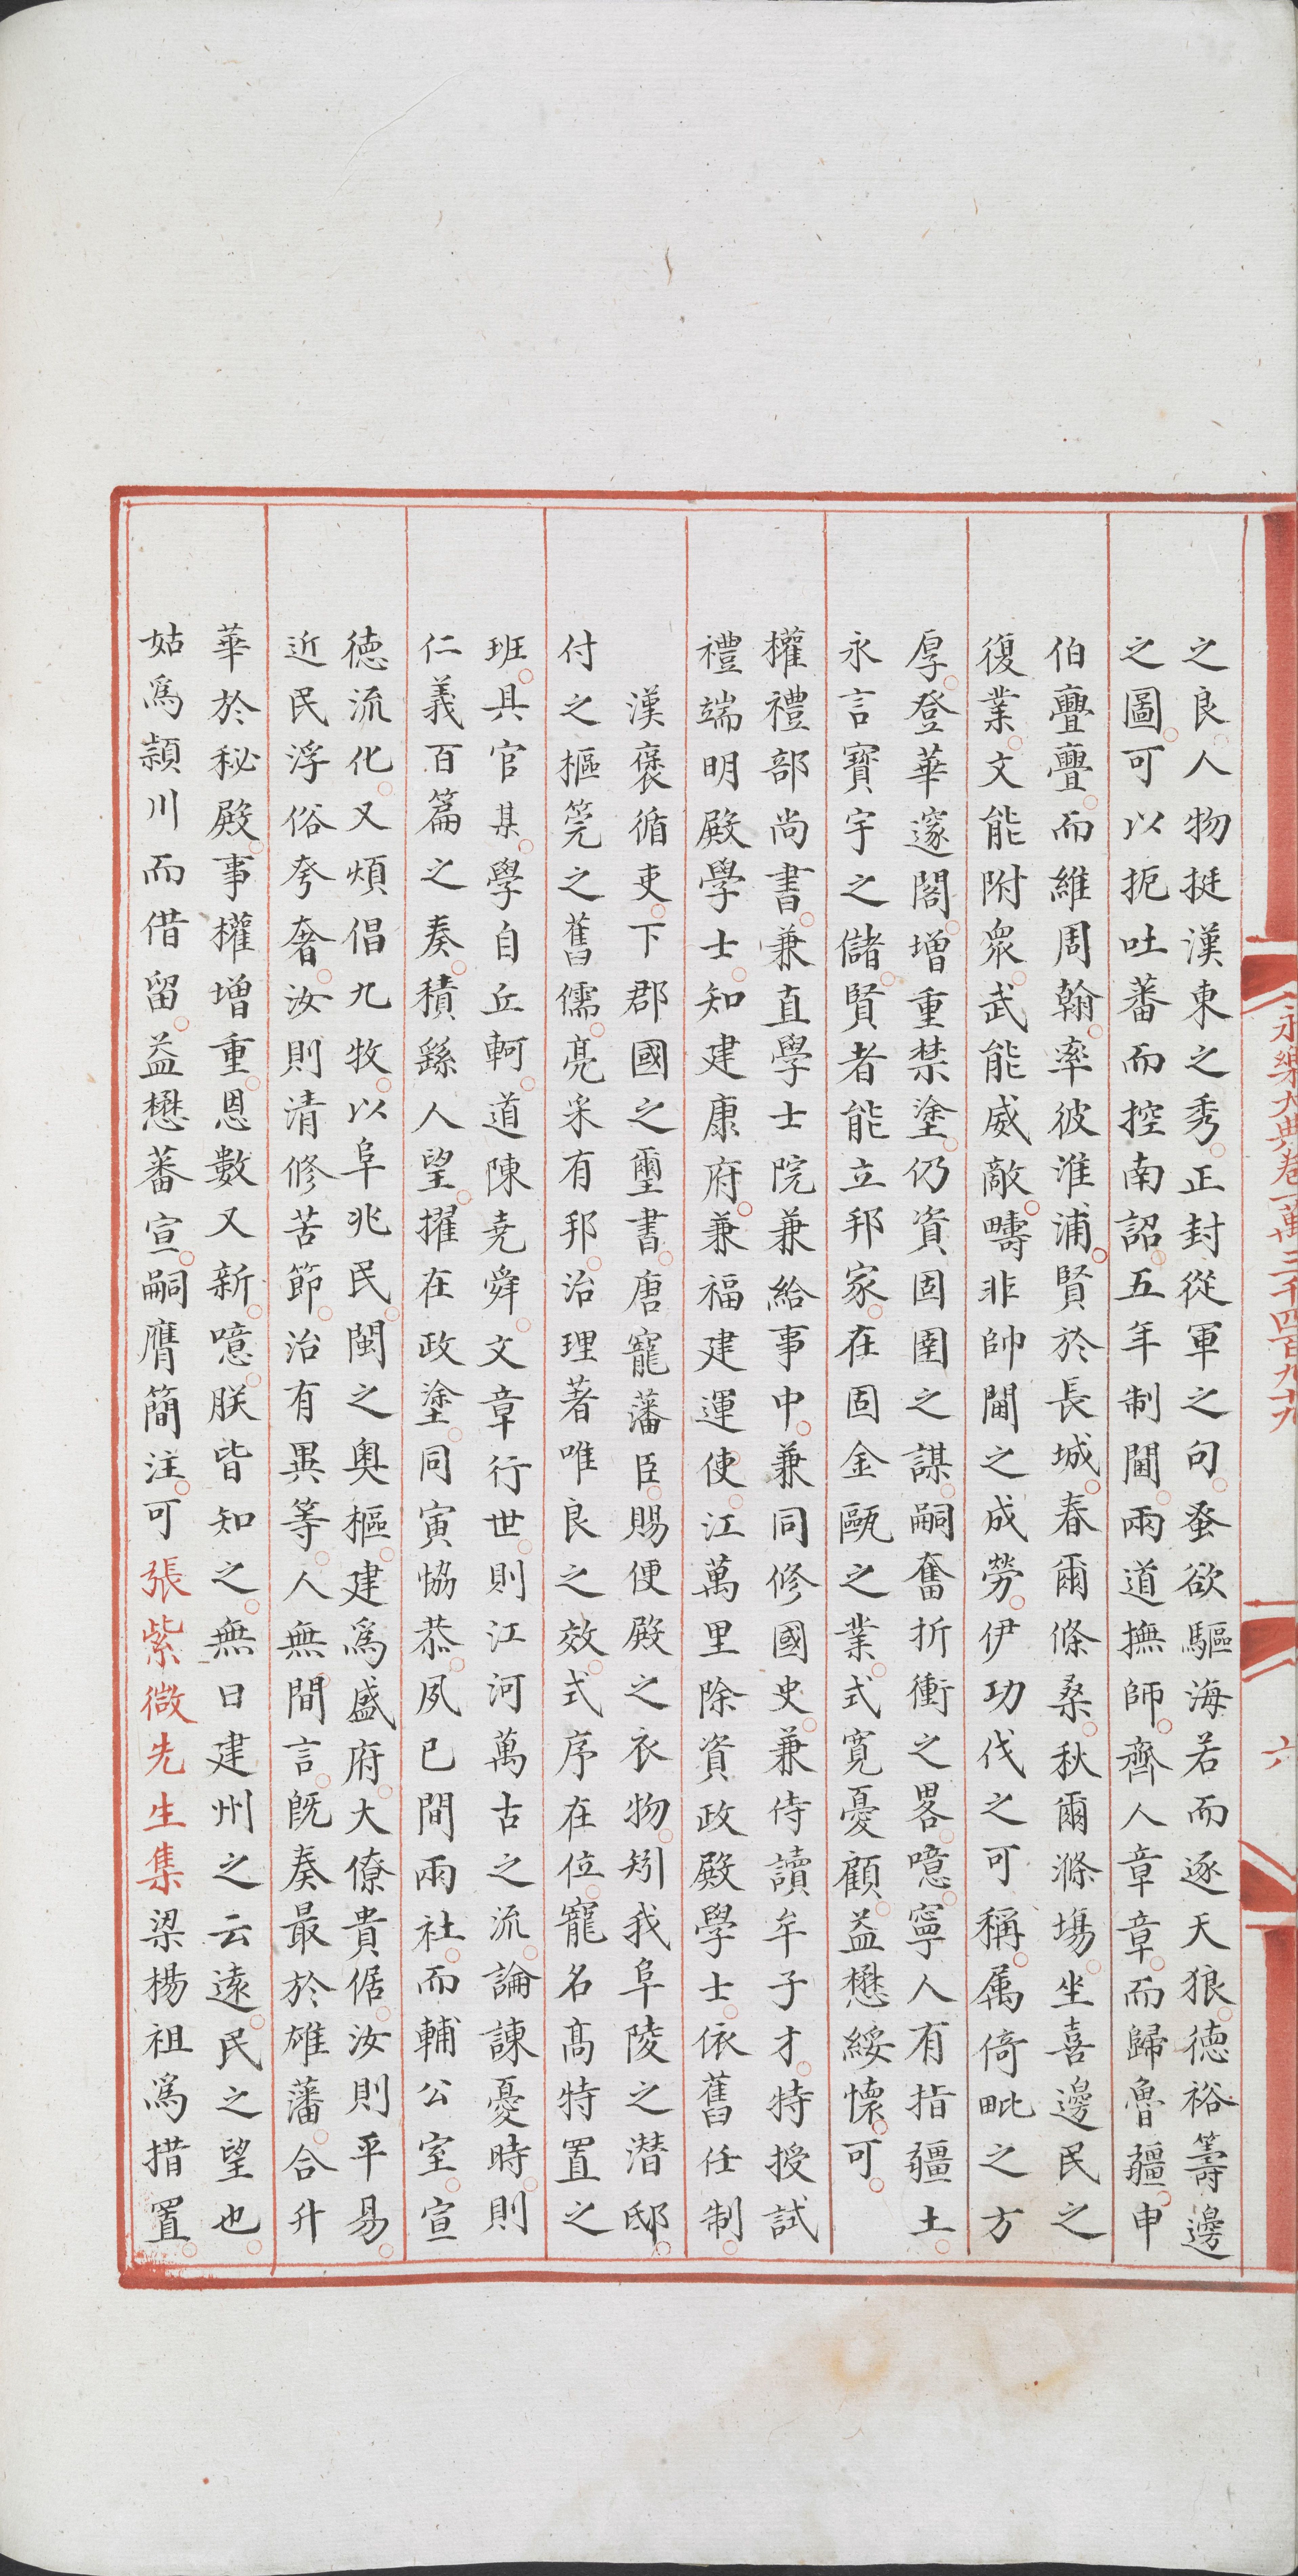 永樂大典卷一萬三千四百九十九
六
之良人物挺漢東之秀正封從軍之句蚤欲驅海若而逐天狼德裕籌邊
之圖可以扼吐蕃而控南詔五年制閫兩道撫師齊人章章而歸魯疆申
伯亹亹而維周翰率彼淮浦賢於長城春爾條桑秋爾滌場坐喜邊民之
復業文能附衆武能威敵疇非帥閫之成勞伊功伐之可稱属倚毗之方
厚登華邃閣增重禁塗仍資固圉之謀嗣奮折衝之畧噫寧人有指疆土
永言寳宇之儲賢者能立邦家在固金甌之業式寛憂顧益懋綏懷可
權禮部尚書兼直學士院兼給事中兼同修國史兼侍讀牟子才特授試
禮端明殿學士知建康府兼福建運使江萬里除資政殿學士依舊任制
漢褒循吏下郡國之璽書唐寵藩臣賜便殿之衣物矧我阜陵之潜邸
付之樞筦之舊儒亮采有邦治理著唯良之效式序在位寵名髙特置之
班具官某學自丘軻道陳堯舜文章行世則江河萬古之流論諫憂時則
仁義百篇之奏積繇人望擢在政塗同寅恊恭夙巳間兩社而輔公室宣
德流化又煩倡九牧以阜兆民閩之奥樞建爲盛府大僚貴倨汝則平易
近民浮俗夸奢汝則清修苦節治有異等人無間言既奏最於雄藩合升
華於秘殿事權增重恩數又新噫朕皆知之無曰建州之云逺民之望也
姑爲頴川而借留益懋蕃宣嗣膺簡注可張紫微先生集梁楊祖爲措置